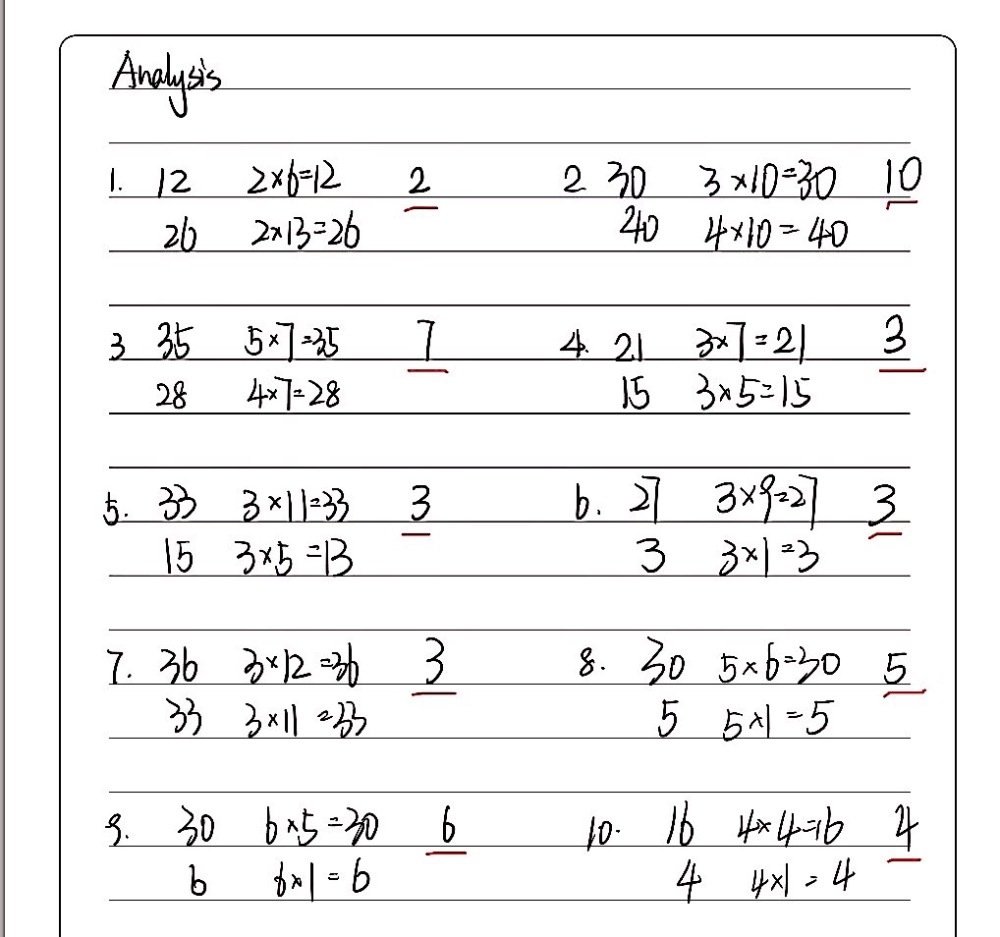 Analysis
1. 12 2×6=12 2 2 30 3×10=30 10
26 2×13=26 40 4×10=40
3 35 5×7=35 7 4. 21 3×7=21 3
28 4×7=28 15 3×5=15
5. 33 3×11=33 3 6. 27 3×9=27 3
15 3×5=13 3 3×1=3
7. 36 3×12=36 3 8. 30 5×6=30 5
33 3×11=33 5 5×1=5
9. 30 6×5=30 6 10. 16 4×4=16 4
6 6×1=6 4 4×1=4